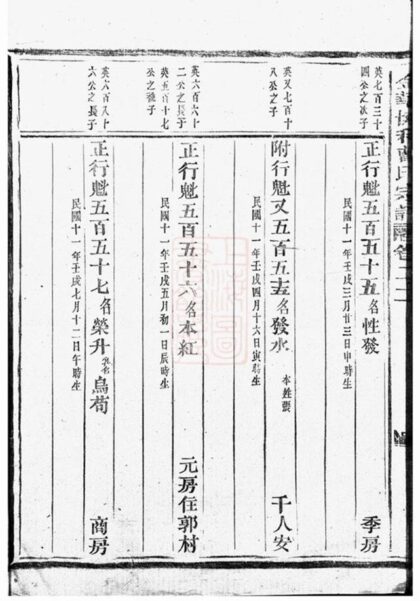 氏宗譜 卷二
英七百三十
四公之次子
正行魁五百五十五 名性發 季房
民國十一年壬戌三月廿三日申時生
英又七百十
八公之子
附行魁又五百五十五 名發水 本姓張 千人安
民國十一年壬戌四月十六日寅時生
英六百六十
二公之長子
英五百十七
公之子
正行魁五百五十六 名本紅 元房住郭村
民國十一年壬戌五月初一日辰時生
英六百八十
六公之長子
正行魁五百五十七 名榮升 乳名烏苟 商房
民國十一年壬戌七月十二日午時生